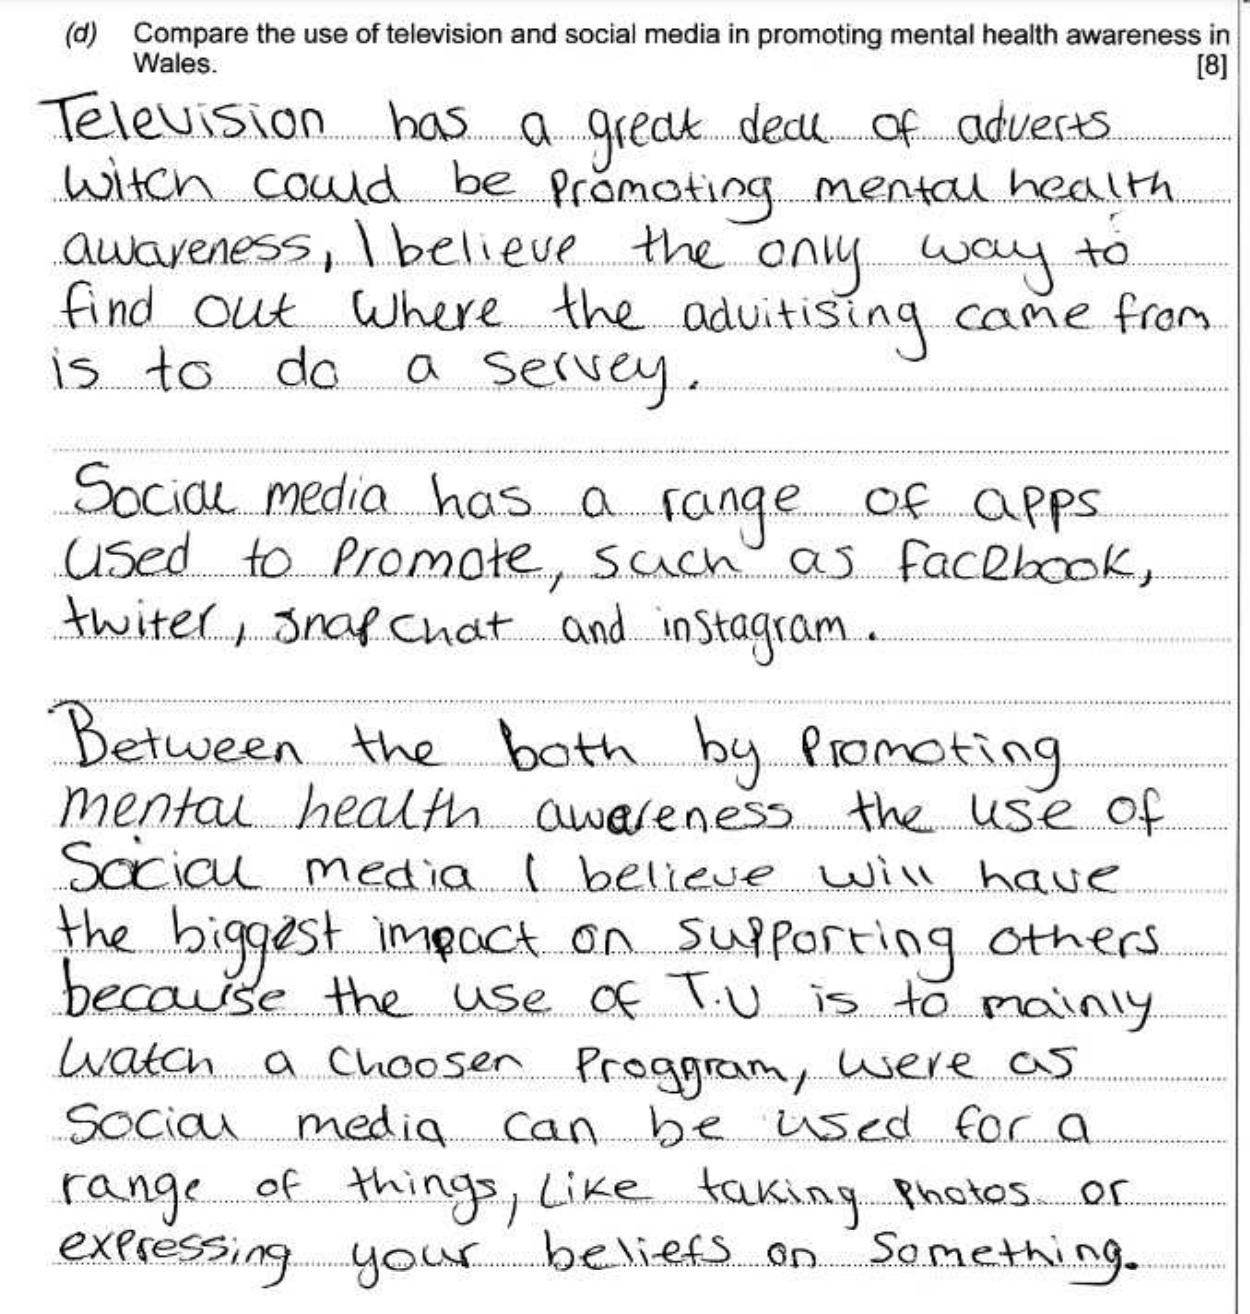 (d) Compare the use of television and social media in promoting mental health awareness in
Wales. [8]
Television has a great deal of adverts
witch could be promoting mental health
awareness, I believe the only way to
find out where the advitising came from
is to do a servey.
Social media has a range of apps
used to promote, such as facebook,
twiter, snapchat and instagram.
Between the both by promoting
mental health awareness the use of
Social media I believe will have
the biggest impact on supporting others
because the use of T.V is to mainly
watch a choosen proggram, were as
social media can be used for a
range of things, like taking photos or
expressing your beliefs on something.